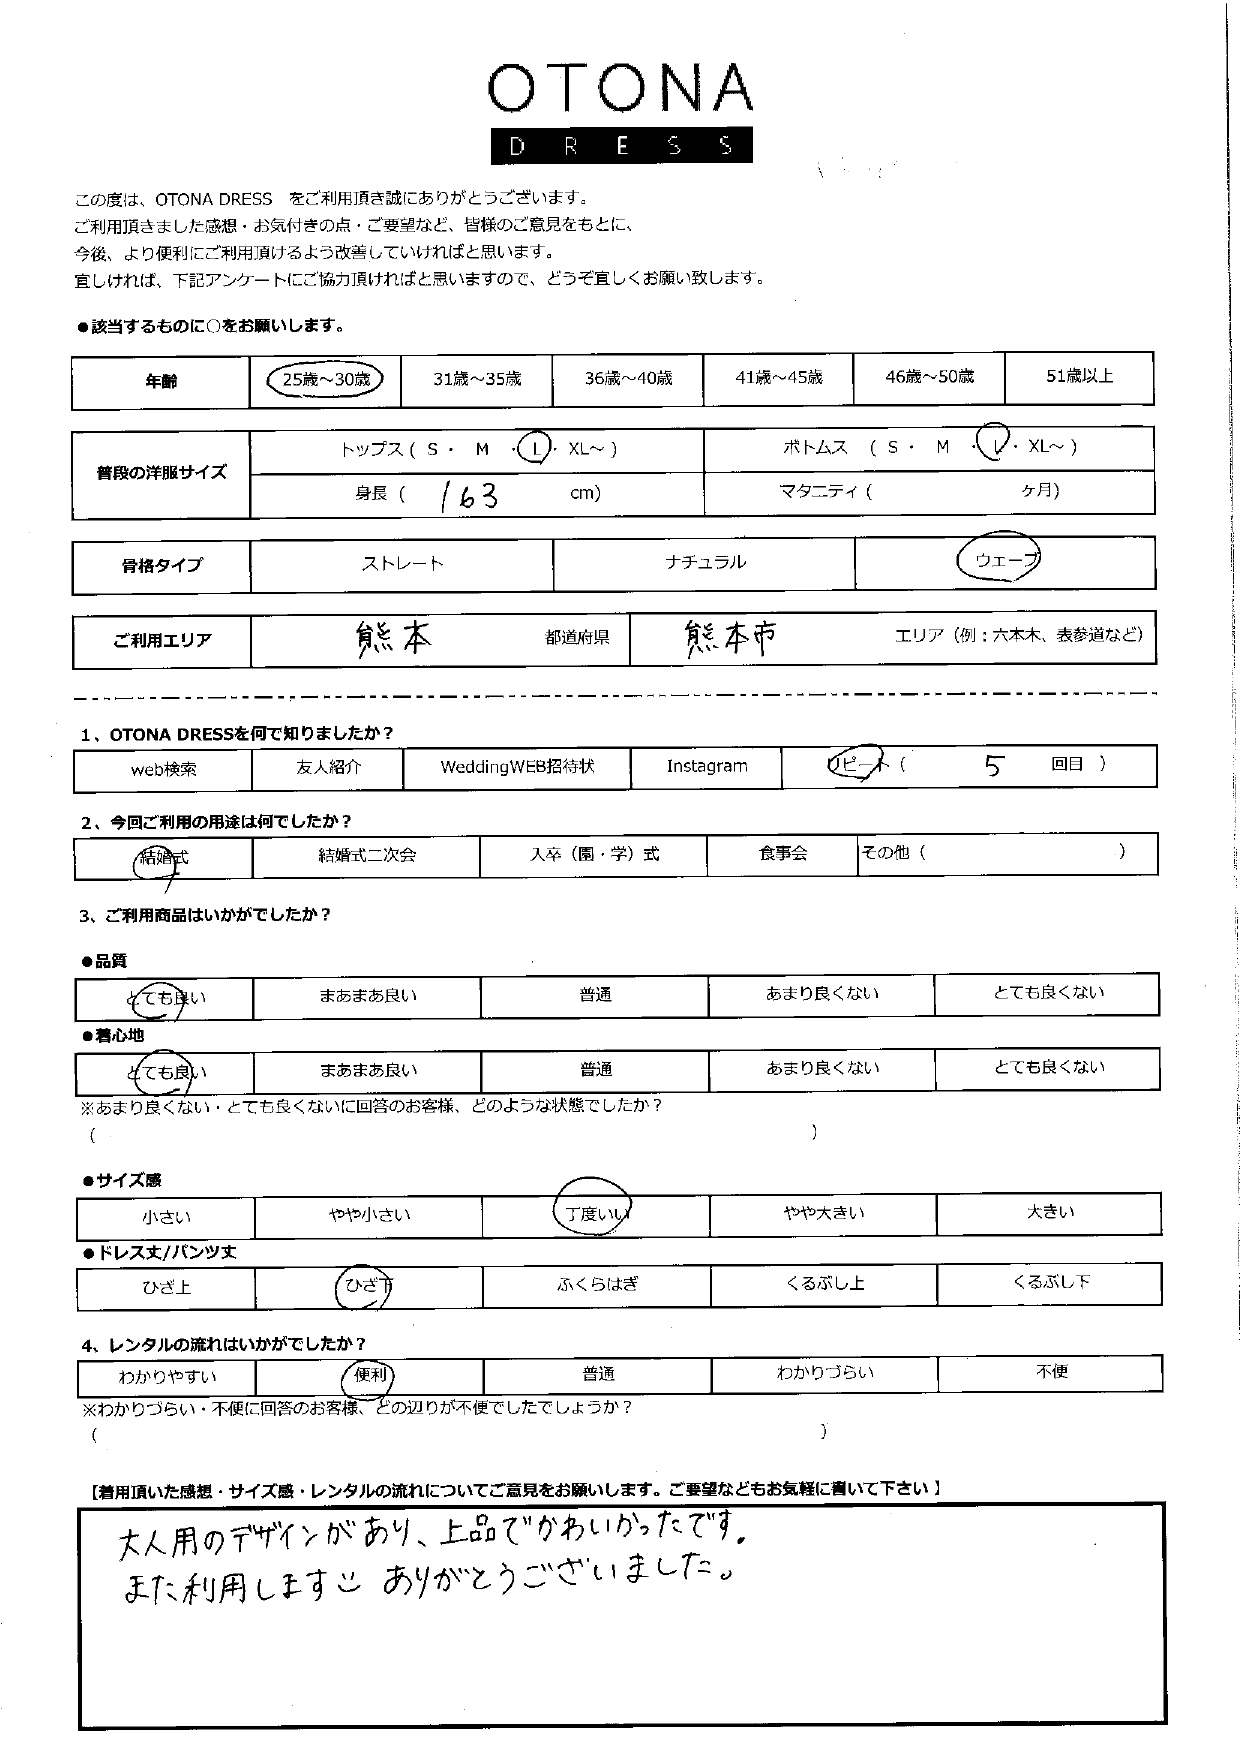 OTONA
DRESS
この度は、OTONA DRESS をご利用頂き誠にありがとうございます。
ご利用頂きました感想・お気付きの点・ご要望など、皆様のご意見をもとに、
今後、より便利にご利用頂けるよう改善していければと思います。
宜しければ、下記アンケートにご協力頂ければと思いますので、どうぞ宜しくお願い致します。
●該当するものに○をお願いします。
年齢 25歳～30歳 31歳～35歳 36歳～40歳 41歳～45歳 46歳～50歳 51歳以上
普段の洋服サイズ
トップス ( S ・ M ・ L ・ XL～ ) ボトムス ( S ・ M ・ L ・ XL～ )
身長 ( 163 cm) マタニティ ( ケ月)
骨格タイプ ストレート ナチュラル ウェーブ
ご利用エリア 熊本 都道府県 熊本市 エリア（例：六本木、表参道など）
1、OTONA DRESSを何で知りましたか？
web検索 友人紹介 WeddingWEB招待状 Instagram リピート ( 5 回目 )
2、今回ご利用の用途は何でしたか？
結婚式 結婚式二次会 入卒（園・学）式 食事会 その他 ( )
3、ご利用商品はいかがでしたか？
●品質
とても良い まあまあ良い 普通 あまり良くない とても良くない
●着心地
とても良い まあまあ良い 普通 あまり良くない とても良くない
※あまり良くない・とても良くないに回答のお客様、どのような状態でしたか？
( )
●サイズ感
小さい やや小さい 丁度いい やや大きい 大きい
●ドレス丈/パンツ丈
ひざ上 ひざ下 ふくらはぎ くるぶし上 くるぶし下
4、レンタルの流れはいかがでしたか？
わかりやすい 便利 普通 わかりづらい 不便
※わかりづらい・不便に回答のお客様、どの辺りが不便でしたでしょうか？
( )
【着用頂いた感想・サイズ感・レンタルの流れについてご意見をお願いします。ご要望などもお気軽に書いて下さい】
大人用のデザインがあり、上品でかわいかったです。
また利用します ありがとうございました。